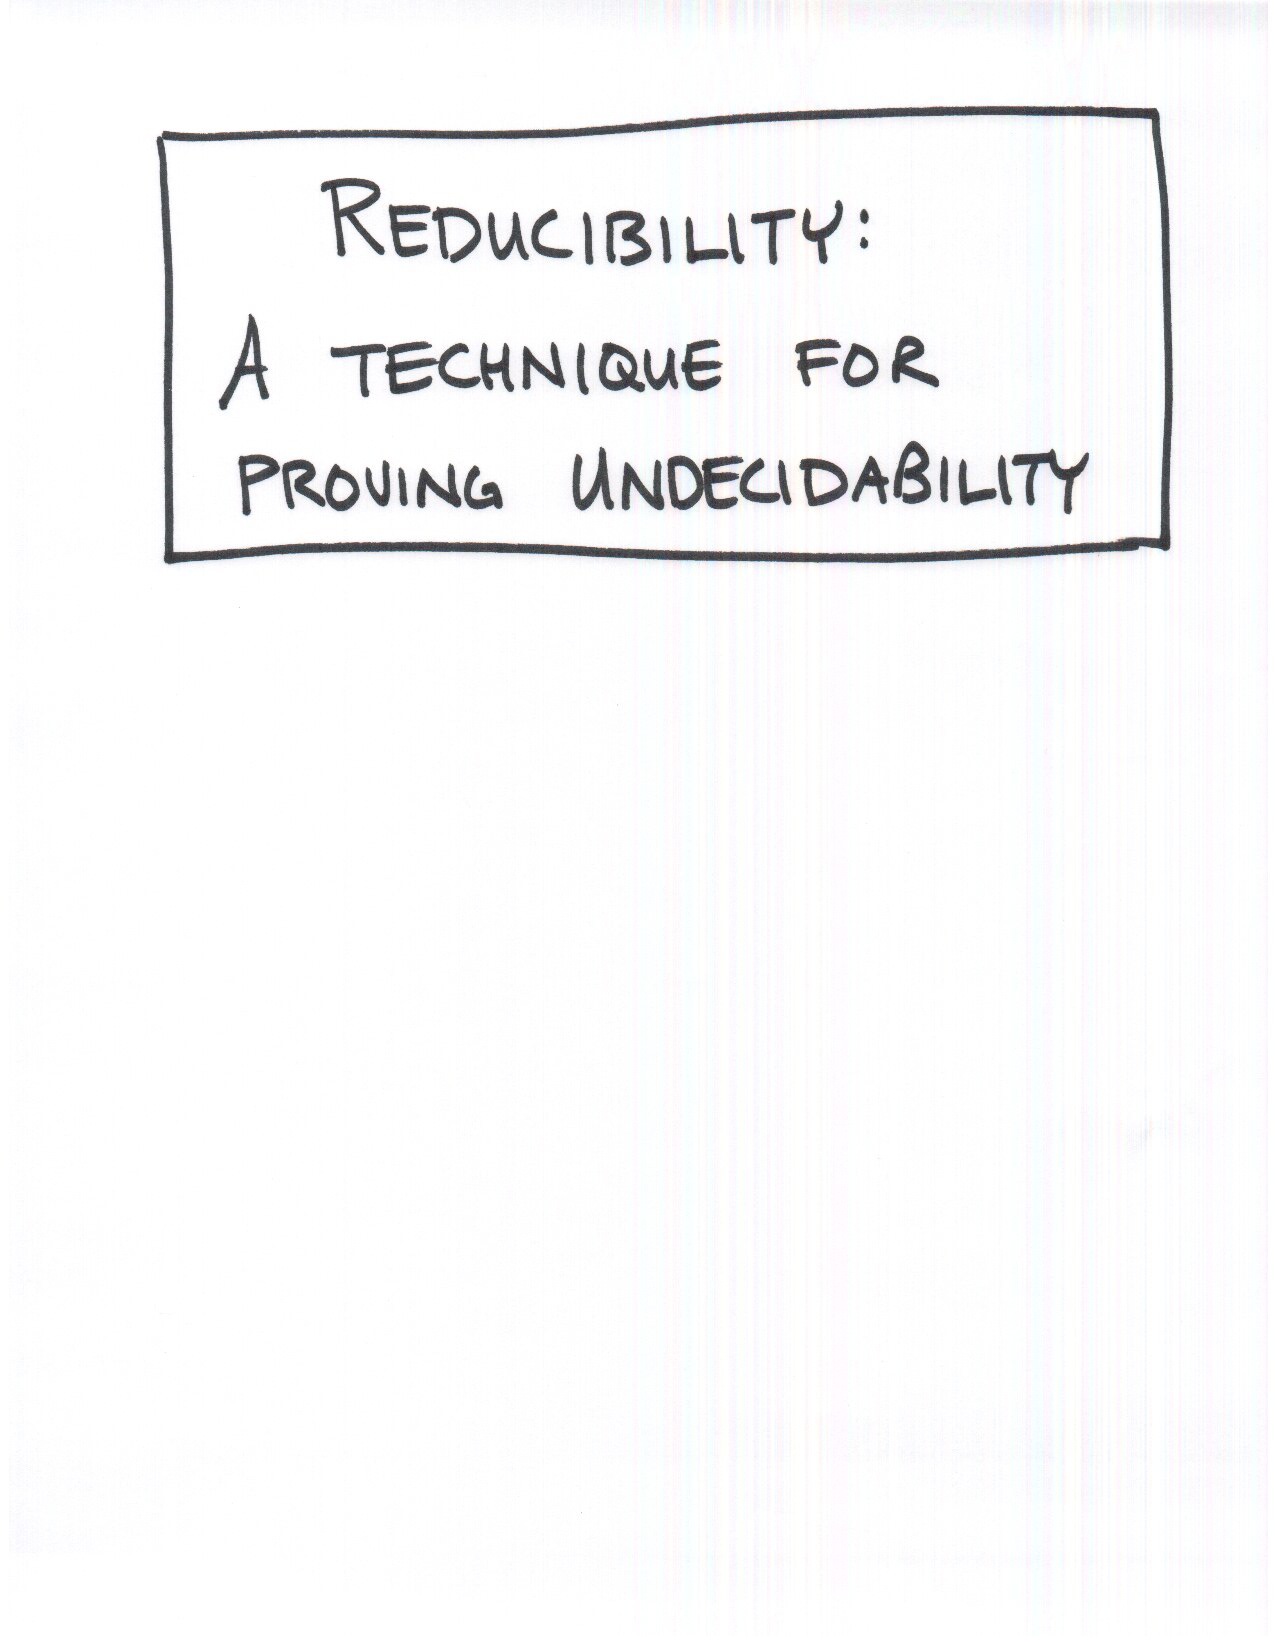 REDUCIBILITY:
A TECHNIQUE FOR
PROVING UNDECIDABILITY